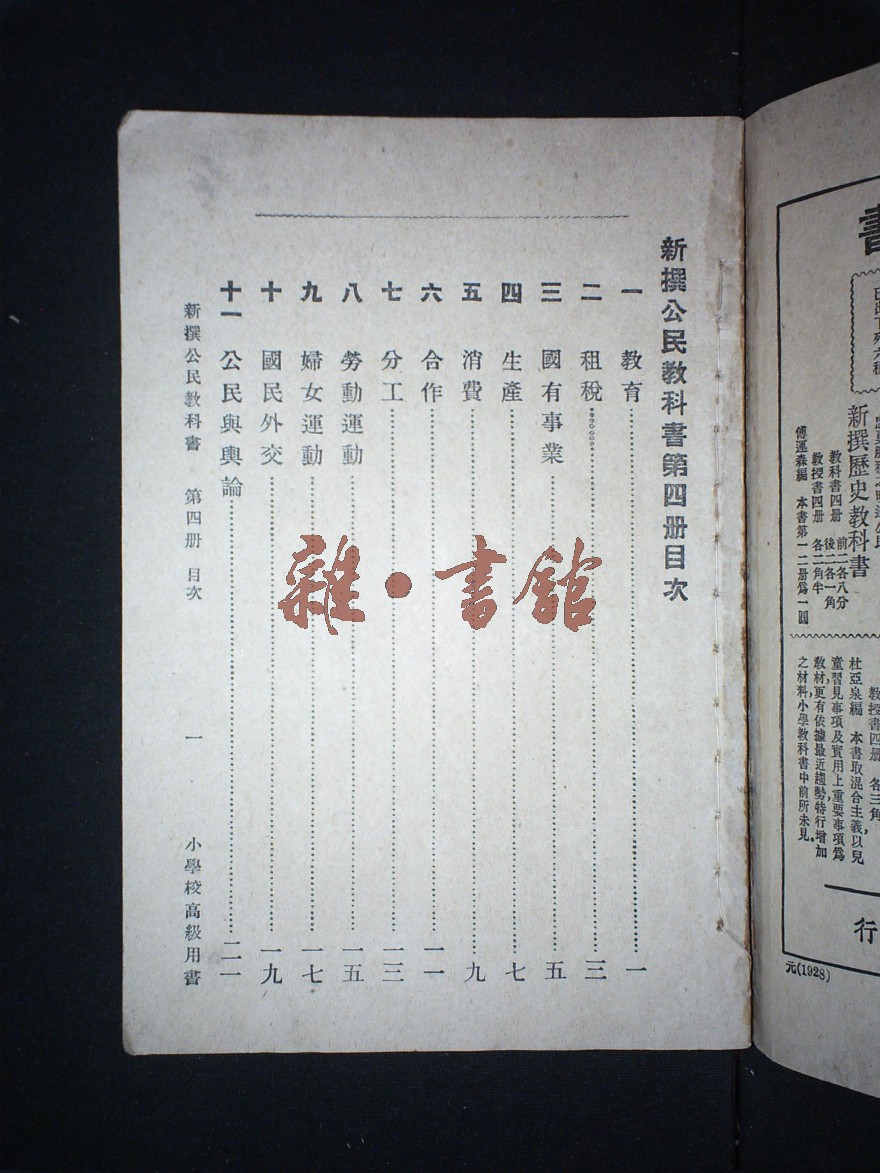 書
新撰歷史教科書
教科書四册 前二各八分
後二各一角
教授書四册 各二角半
傅運森編 本書第一二册爲一圓
教授書四册 各三角
杜亞泉編 本書取混合主義以兒
童習見事項及實用上重要事項爲
教材更有依據最近趨勢特行增加
之材料小學教科書中前所未見
行
元(1928)
新撰公民教科書第四册目次
一 教育 一
二 租稅 三
三 國有事業 五
四 生產 七
五 消費 九
六 合作 一一
七 分工 一三
八 勞動運動 一五
九 婦女運動 一七
十 國民外交 一九
十一 公民與輿論 二一
新撰公民教科書 第四册 目次 一 小學校高級用書
雜·書館